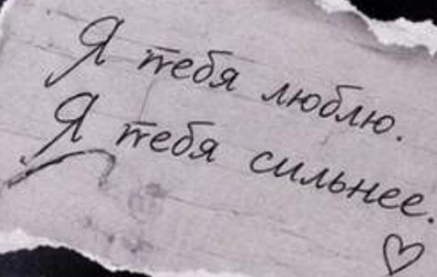 Я тебя люблю.
Я тебя сильнее.